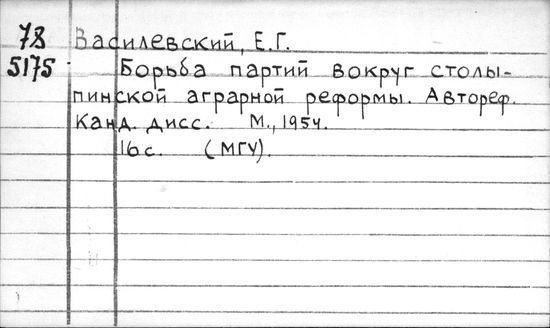 78 Василевский, Е.Г.
5175 Борьба партий вокруг столы-
пинской аграрной реформы. Автореф.
Канд. дисс. М., 1954.
16 с. (МГУ).